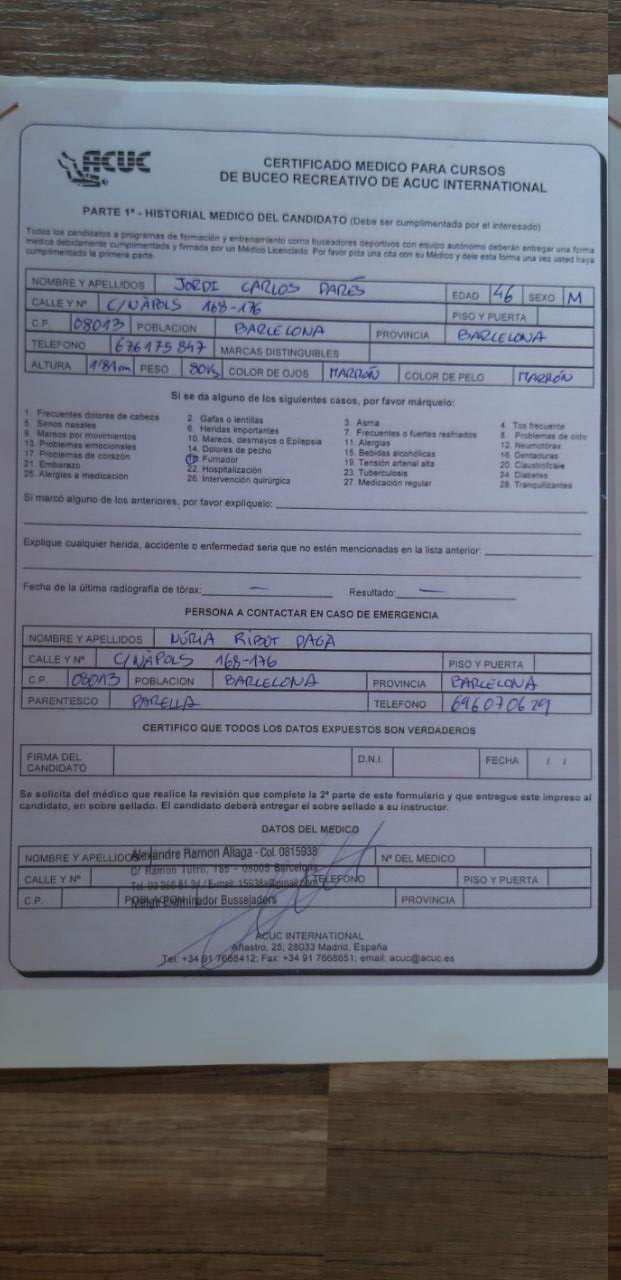 ACUC
CERTIFICADO MEDICO PARA CURSOS
DE BUCEO RECREATIVO DE ACUC INTERNATIONAL
PARTE 1ª - HISTORIAL MEDICO DEL CANDIDATO (Debe ser cumplimentada por el interesado)
Todos los candidatos a programas de formación y entrenamiento como buceadores deportivos con equipo autónomo deberán entregar una forma
médica debidamente cumplimentada y firmada por un Médico Licenciado. Por favor pida una cita con su Médico y dele esta forma una vez usted haya
cumplimentado la primera parte.
NOMBRE Y APELLIDOS JORDI CARLOS PARÉS EDAD 46 SEXO M
CALLE Y Nº C/NÀPOLS 168-176 PISO Y PUERTA
C.P. 08013 POBLACION BARCELONA PROVINCIA BARCELONA
TELEFONO 676175847 MARCAS DISTINGUIBLES
ALTURA 1'81m PESO 80KS COLOR DE OJOS MARRÓN COLOR DE PELO MARRÓN
Si se da alguno de los siguientes casos, por favor márquelo:
1. Frecuentes dolores de cabeza 2. Gafas o lentillas 3. Asma 4. Tos frecuente
5. Senos nasales 6. Heridas importantes 7. Frecuentes o fuertes resfriados 8. Problemas de oído
9. Mareos por movimientos 10. Mareos, desmayos o Epilepsia 11. Alergias 12. Neumotórax
13. Problemas emocionales 14. Dolores de pecho 15. Bebidas alcohólicas 16. Dentaduras
17. Problemas de corazón 18. Fumador 19. Tensión arterial alta 20. Claustrofobia
21. Embarazo 22. Hospitalización 23. Tuberculosis 24. Diabetes
25. Alergias a medicación 26. Intervención quirúrgica 27. Medicación regular 28. Tranquilizantes
Si marcó alguno de los anteriores, por favor explíquelo:
Explique cualquier herida, accidente o enfermedad seria que no estén mencionadas en la lista anterior:
Fecha de la última radiografía de tórax: — Resultado: —
PERSONA A CONTACTAR EN CASO DE EMERGENCIA
NOMBRE Y APELLIDOS NÚRIA RIBOT PAGÀ
CALLE Y Nº C/NÀPOLS 168-176 PISO Y PUERTA
C.P. 08013 POBLACION BARCELONA PROVINCIA BARCELONA
PARENTESCO PARELLA TELEFONO 696070629
CERTIFICO QUE TODOS LOS DATOS EXPUESTOS SON VERDADEROS
FIRMA DEL CANDIDATO D.N.I. FECHA / /
Se solicita del médico que realice la revisión que complete la 2ª parte de este formulario y que entregue este impreso al
candidato, en sobre sellado. El candidato deberá entregar el sobre sellado a su instructor.
DATOS DEL MEDICO
NOMBRE Y APELLIDOS Alexandre Ramon Aliaga - Col. 0815938 Nº DEL MEDICO
CALLE Y Nº C/ Ramon Turró, 185 - 08005 Barcelona TELEFONO PISO Y PUERTA
C.P. POBLACION Metge Examinador Bussejadors PROVINCIA
ACUC INTERNATIONAL
Añastro, 25; 28033 Madrid, España
Tel: +34 91 7668412; Fax: +34 91 7668651; email: acuc@acuc.es